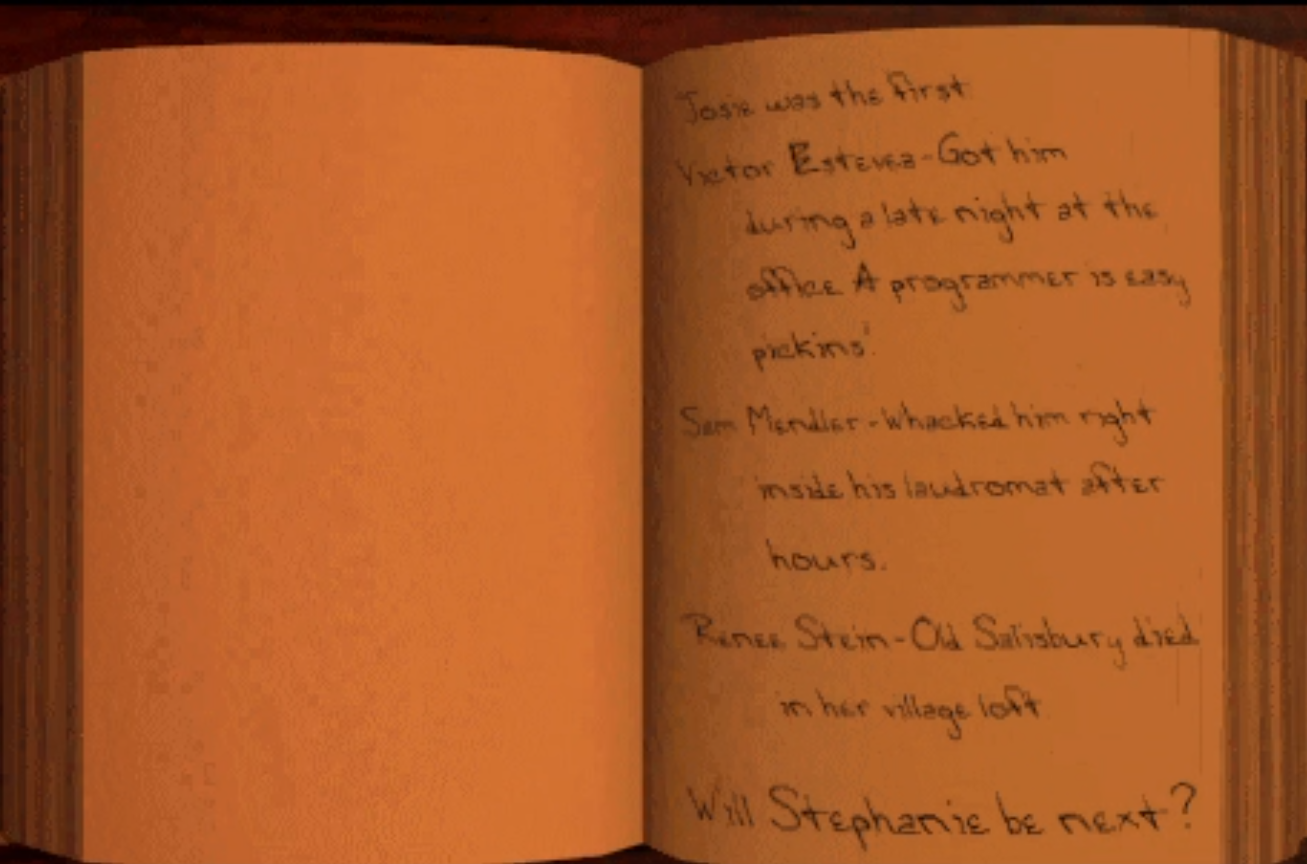 Josie was the first
Victor Estevez-Got him
during a late night at the
office A programmer is easy
pickins'.
Sam Mendler-Whacked him right
inside his laudromat after
hours.
Renee Stein-Old Salisbury died
in her village loft
Will Stephanie be next?